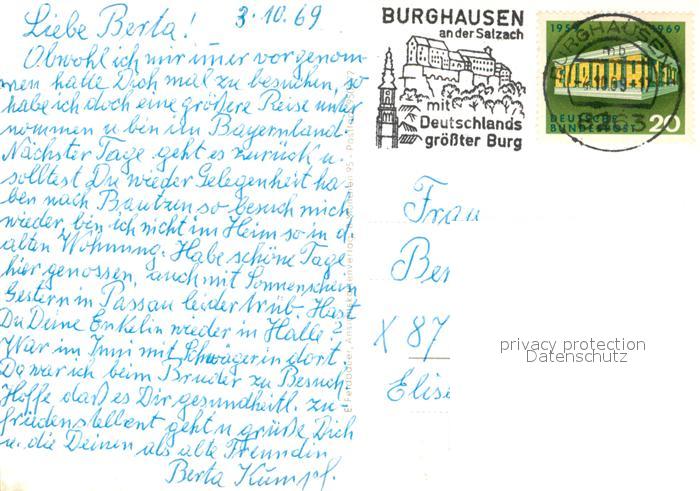 3.10.69
Liebe Berta!
Obwohl ich mir imer vorgenom-
men hatte Dich mal zu besuchen, so
habe ich doch eine größere Reise unter
nommen u. bin im Bayernland.
Nächster Tage geht es zurück u.
solltest Du wieder Gelegenheit ha
ben nach Bautzen so besuch mich
wieder, bin ich nicht im Heim so in d.
alten Wohnung. Habe schöne Tage
hier genossen, auch mit Sonnenschein
Gestern in Passau leider trüb. Hast
Du Deine Enkelin wieder in Halle?
War im Juni mit Schwägerin dort.
Da war ich beim Bruder zu Besuch
Hoffe daß es Dir gesundheitl. zu-
friedenstellent geht u grüße Dich
u. die Deinen als alte Freundin
Berta Kumpf.
BURGHAUSEN
an der Salzach
mit
Deutschlands
größter Burg
1969
EUROPA
DEUTSCHE
BUNDESPOST
20
BURGHAUSEN
Frau
Be
X 87
Elise
privacy protection
Datenschutz